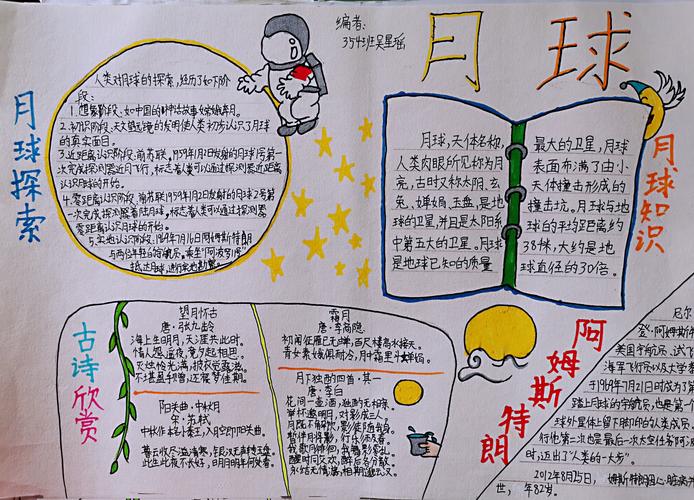 编者:
354班吴星瑶
月球
月球探索
人类对月球的探索,经历了如下阶
段:
1.想象阶段、如中国的神话故事嫦娥奔月。
2.初识阶段、天文望远镜的发明使人类初步认识了月球
的真实面目。
3.近距离认识阶段、前苏联,1959年1月2日发射的月球1号第一
次完成探测器近月飞行,标志着人类可以通过探测器近距离
认识月球的开始。
4.零距离认识阶段,前苏联1959年1月2日发射的月球2号第
一次完成探测器着陆月球,标志着人类可以通过探测器
零距离认识月球的开始。
5.实地认识阶段,1969年7月16日阿姆斯特朗
与两位年轻的宇航员,乘坐"阿波罗11号"
抵达月球,进行实地勘察。
月球知识
月球,天体名称,
人类肉眼所见称为月
亮,古时又称太阴、玄
兔、婵娟、玉盘,是地
球的卫星,并且是太阳系
中第五大的卫星。月球
是地球已知的质量
最大的卫星,月球
表面布满了由小
天体撞击形成的
撞击坑。月球与地
球的平均距离约
38 大约是地
球直径的30倍。
古诗欣赏
望月怀古
唐·张九龄
海上生明月,天涯共此时。
情人怨遥夜,竟夕起相思。
灭烛怜光满,披衣觉露滋。
不堪盈手赠,还寝梦佳期。
阳关曲·中秋月
宋·苏轼
中秋作本名小秦王,入腔即阳关曲。
暮云收尽溢清寒,银汉无声转玉盘。
此生此夜不长好,明月明年何处看。
霜月
唐·李商隐
初闻征雁已无蝉,百尺楼高水接天。
青女素娥俱耐冷,月中霜里斗婵娟。
月下独酌四首·其一
唐·李白
花间一壶酒,独酌无相亲。
举杯邀明月,对影成三人。
月既不解饮,影徒随我身。
暂伴月将影,行乐须及春。
我歌月徘徊,我舞影零乱。
醒时同交欢,醉后各分散。
永结无情游,相期邈云汉。
阿姆斯特朗
尼尔
登·阿姆斯特
美国宇航员、试飞
海军飞行家以及大学教
于1969年7月21日时成为了第
踏上月球的宇航员,也是第一个
球外星体上留下脚印的人类成员,
行他第一次也是最后一次太空任务阿波
时,迈出了"人类的一大步"
2012年8月25日, 姆斯特朗因心脏病
世,年82岁。